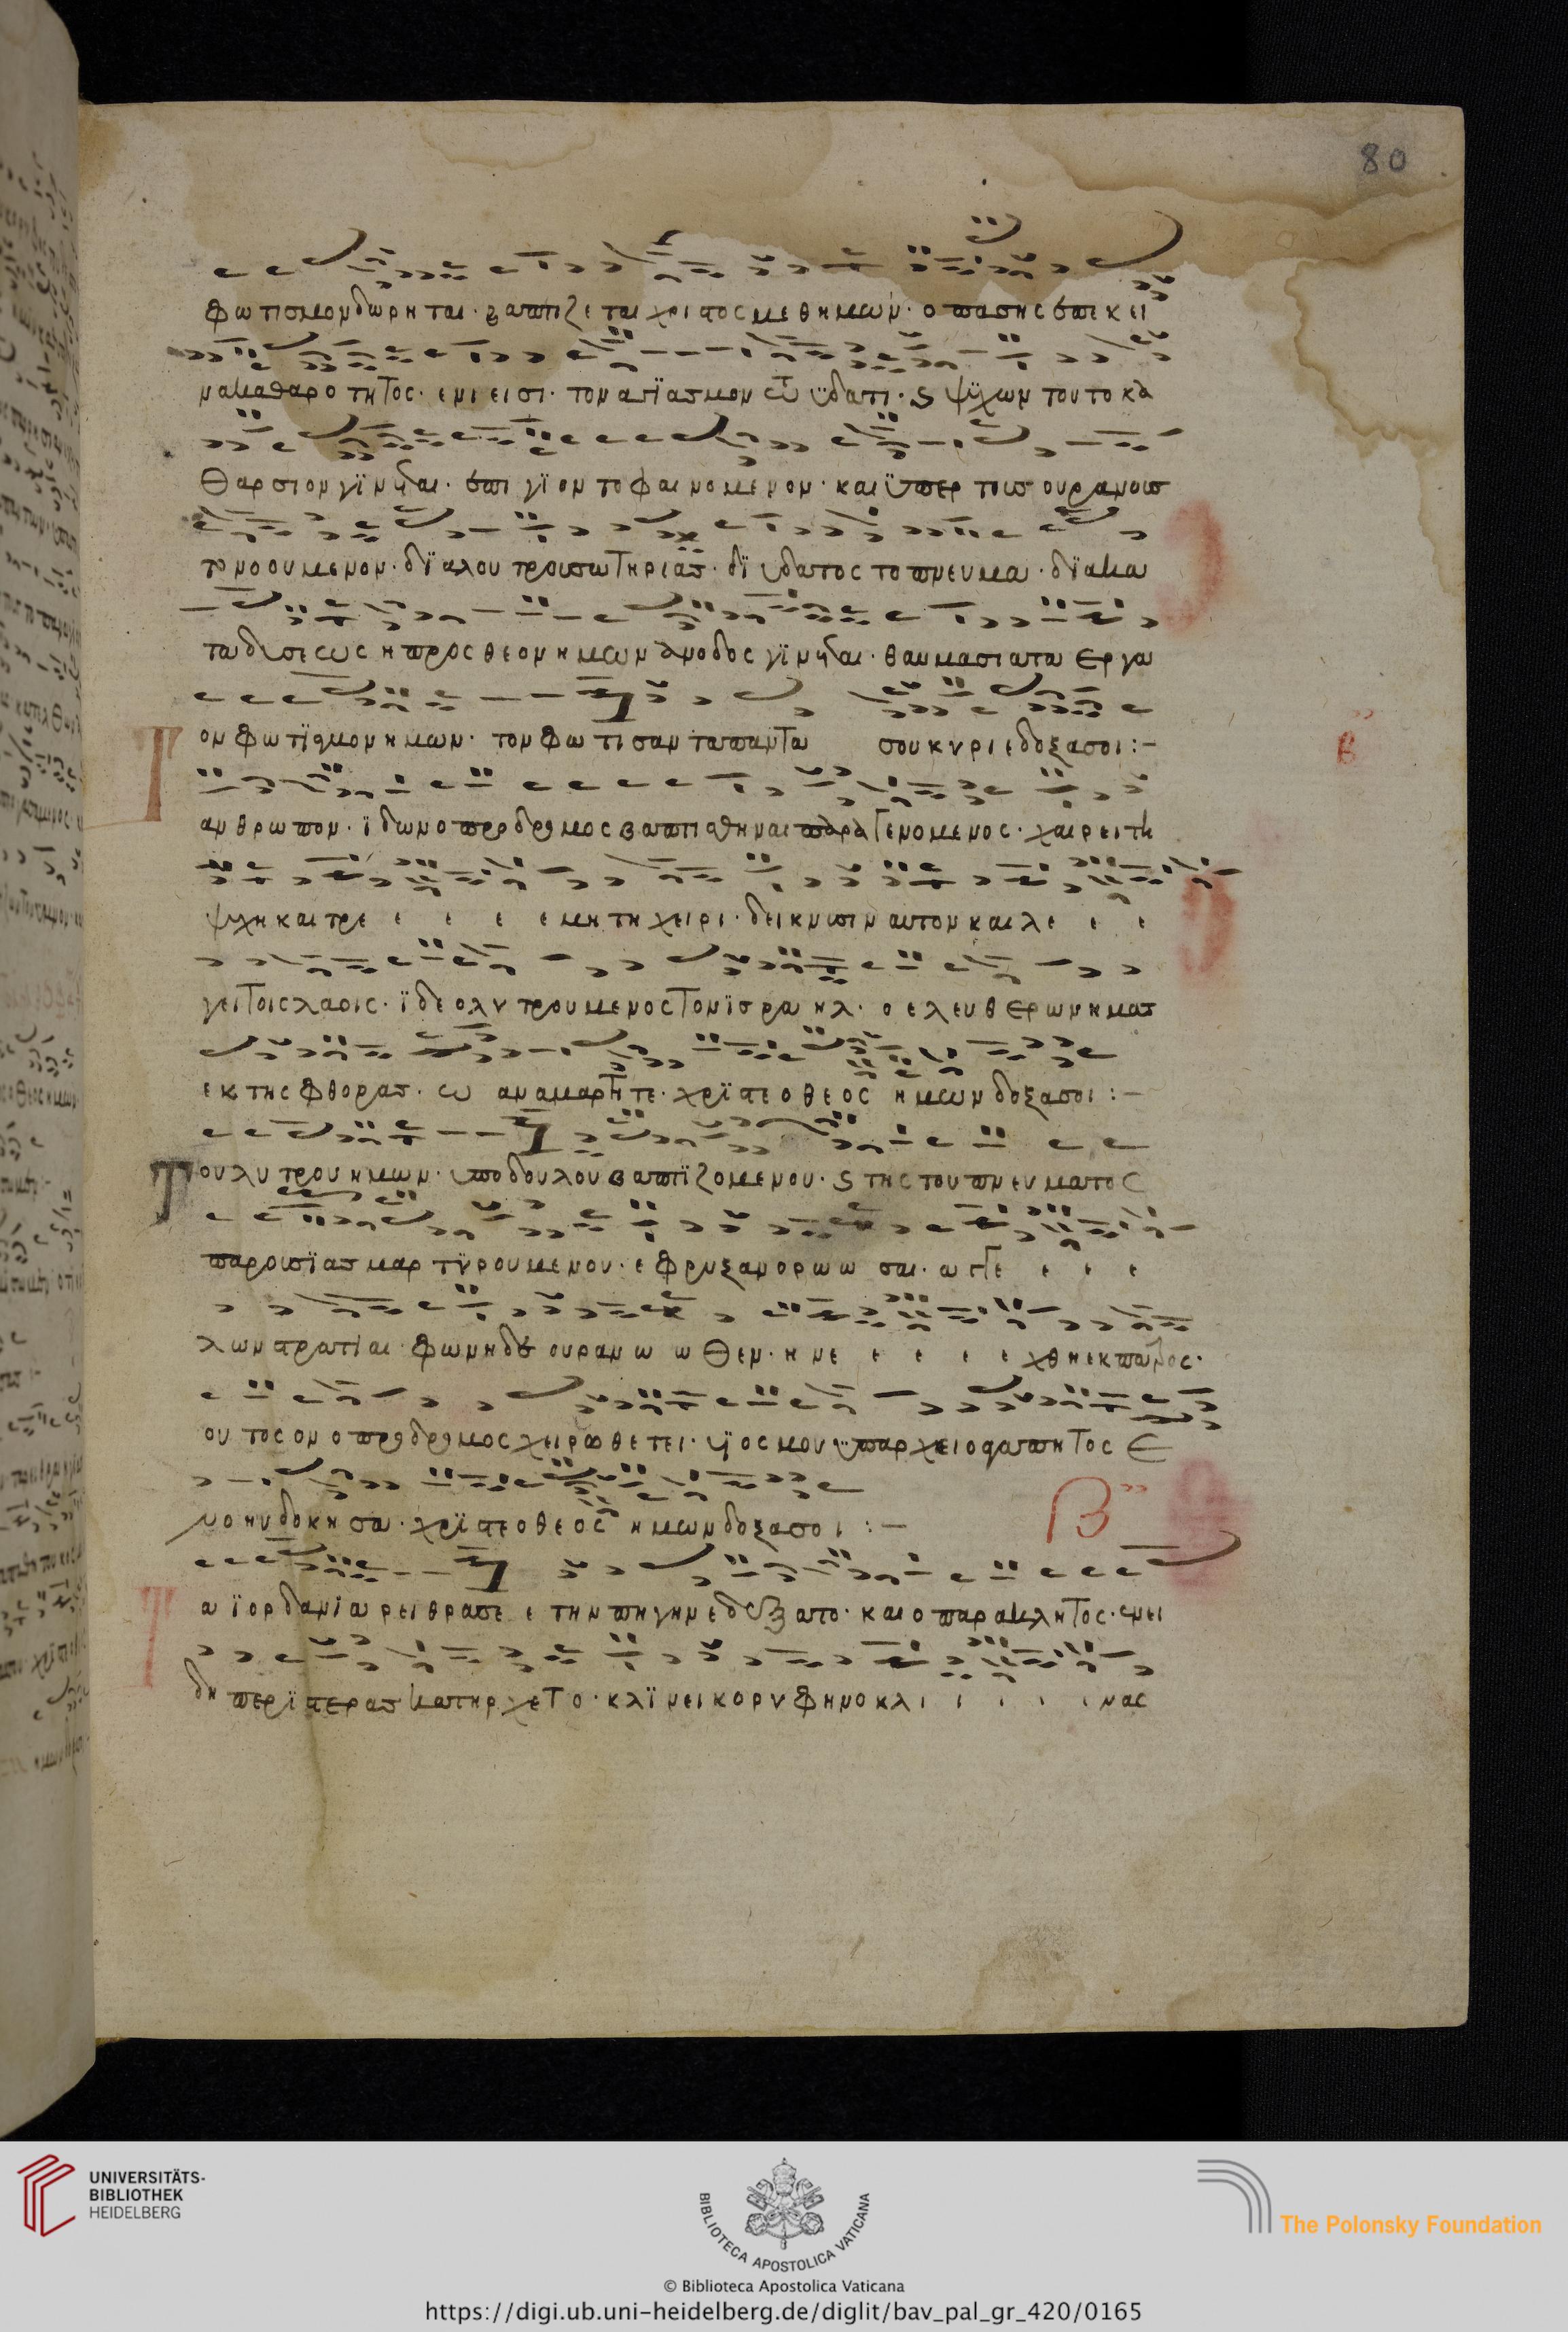 80
φωτισμον δωρηται · βαπτιζεται χριστος μεθ ημων · ο πασης επεκει
να καθαροτητος · ενιεισι · τον αγϊασμον τω ϋδατι · ϗ ψϋχων τουτο κα
θαρσιον γϊνεται · επι γϊον το φαινομενον · και ϋπερ τους ουρανους
το νοουμενον · δϊα λουτρου σωτηριας · δϊ υδατος το πνευμα · δϊα κα
ταδυσεως η προς θεον ημων ανοδος γϊνεται · θαυμασια τα εργα
σου κυριε δοξα σοι :-
β
Τον φωτϊσμον ημων · τον φωτισαντα παντα
ανθρωπον · ϊδων ο προδρομος βαπτισθηναι παραγενομενος · χαιρει τη
ψυχη και τρε ε ε ε ε μει τη χειρι · δεικνυσιν αυτον και λε ε ε
γει τοις λαοις · ϊδε ο λυτρουμενος τον ϊσραηλ · ο ελευθερων ημας
εκ της φθορας · ω αναμαρτητε · χρϊστε ο θεος ημων δοξα σοι :-
Του λυτρου ημων · υπο δουλου βαπτϊζομενου · ϗ τη του πνευματος
παρουσϊα μαρτϋρουμενου · εφρυξαν ορωωσαι · αγγε ε ε ε
λων στρατιαι · φωνη δε ουρανωωθεν · ηνε ε ε ε ε χθη εκ πατρος ·
ουτος ον ο προδρομος χειροθετει · υϊος μου ϋπαρχει ο αγαπητος ε
ν ω ηυδοκησα · χρϊστε ο θεος ημων δοξα σοι :-
β
Τα ϊορδανϊα ρειθρα σε ε την πηγην εδεξατο · και ο παρακλητος · εν ει
δη περϊστερας κατηρχετο · κλϊνει κορυφην ο κλι ι ι ι ι νας
UNIVERSITÄTS-
BIBLIOTHEK
HEIDELBERG
BIBLIOTECA APOSTOLICA VATICANA
The Polonsky Foundation
© Biblioteca Apostolica Vaticana
https://digi.ub.uni-heidelberg.de/diglit/bav_pal_gr_420/0165